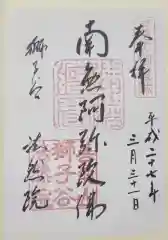 奉拝
平成二十七年
三月三十一日
南無阿弥陀佛
獅子谷
法然院